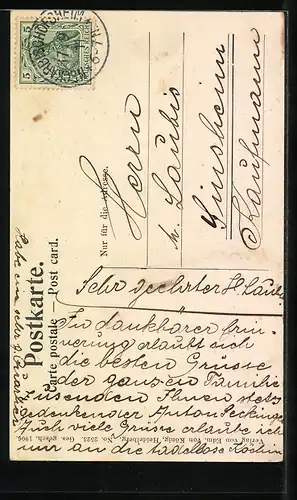 Postkarte.
Carte postale — Post card.
Nur für die Adresse.
Herrn
h. Laubis
Sinsheim
Kaufmann
Sehr geehrter H Laub
In dankbarer Erin-
nerung erlaubt sich
die besten Grüsse
der ganzen Familie
zusenden Ihnen stets
gedenkender Anton
Auch viele Grüsse erlaube ich
mir an die tadellose Köchin
Verlag von Edm. von König, Heidelberg, No. 2523. Ges. gesch. 1906
Habe
sehr
5
5